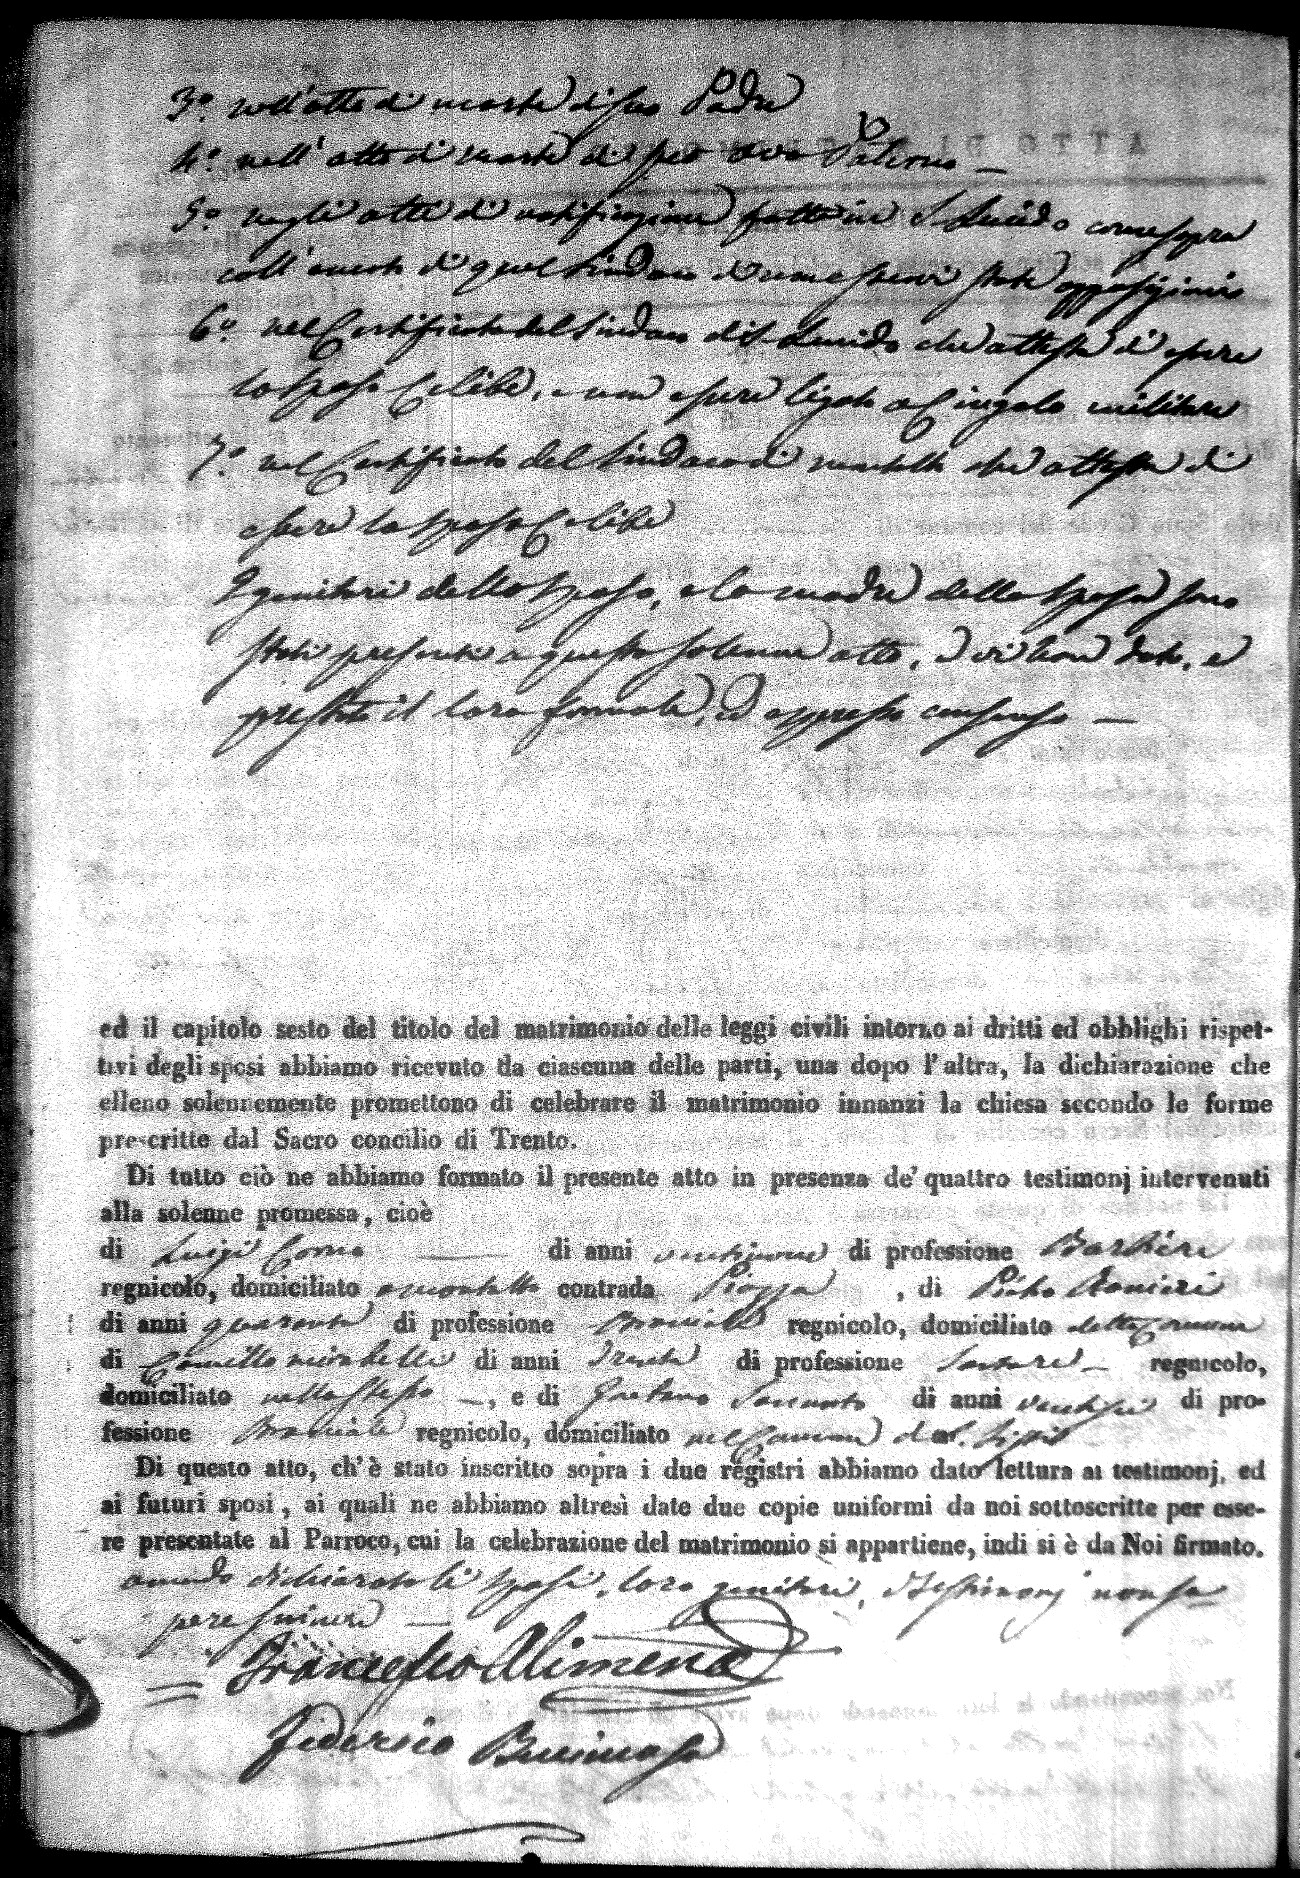 3.° nell'atto di morte di suo Padre
4.° nell'atto di morte di suo avo Paterno —
5.° negli atti di notificazione fatte in S. Lucido come sopra
coll' di quel Sindaco di non esservi state opposizioni
6.° nel Certificato del Sindaco di S. Lucido che attesta di essere
lo sposo Celibe, e non essere ligato a Cingolo militare
7.° nel Certificato del Sindaco di che attesta di
essere la sposa Celibe
I genitori dello sposo, e la madre della sposa sono
stati presenti a questo solenne atto, e vi han dato, e
prestato il loro formale, ed espresso consenso —
ed il capitolo sesto del titolo del matrimonio delle leggi civili intorno ai dritti ed obblighi rispet-
tivi degli sposi abbiamo ricevuto da ciascuna delle parti, una dopo l'altra, la dichiarazione che
elleno solennemente promettono di celebrare il matrimonio innanzi la chiesa secondo le forme
prescritte dal Sacro concilio di Trento.
Di tutto ciò ne abbiamo formato il presente atto in presenza de' quattro testimonj intervenuti
alla solenne promessa, cioè
di Luigi — di anni ventinove di professione Barbiere
regnicolo, domiciliato contrada Piazza , di Pietro Ranieri
di anni quaranta di professione Bracciale regnicolo, domiciliato detto Comune
di Camillo Mirabelli di anni Trenta di professione Sartore — regnicolo,
domiciliato nello stesso —, e di Gaetano di anni ventisei di pro-
fessione Bracciale regnicolo, domiciliato nel Comune di
Di questo atto, ch'è stato inscritto sopra i due registri abbiamo dato lettura ai testimonj, ed
ai futuri sposi, ai quali ne abbiamo altresì date due copie uniformi da noi sottoscritte per esse-
re presentate al Parroco, cui la celebrazione del matrimonio si appartiene, indi si è da Noi firmato.
avendo dichiarato li sposi, loro genitori, e Testimonj non sa-
pere scrivere —
Francesco Alimena
Federico